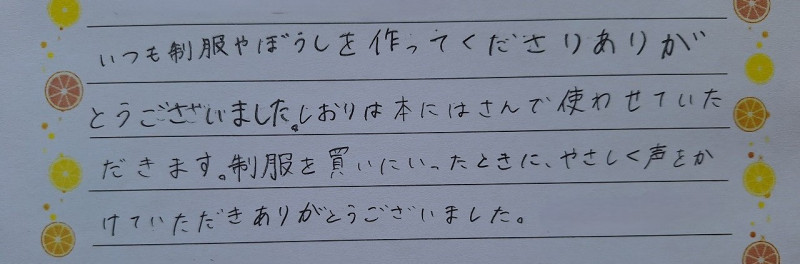 いつも制服やぼうしを作ってくださりありが
とうございました。しおりは本にはさんで使わせていた
だきます。制服を買いにいったときに、やさしく声をか
けていただきありがとうございました。